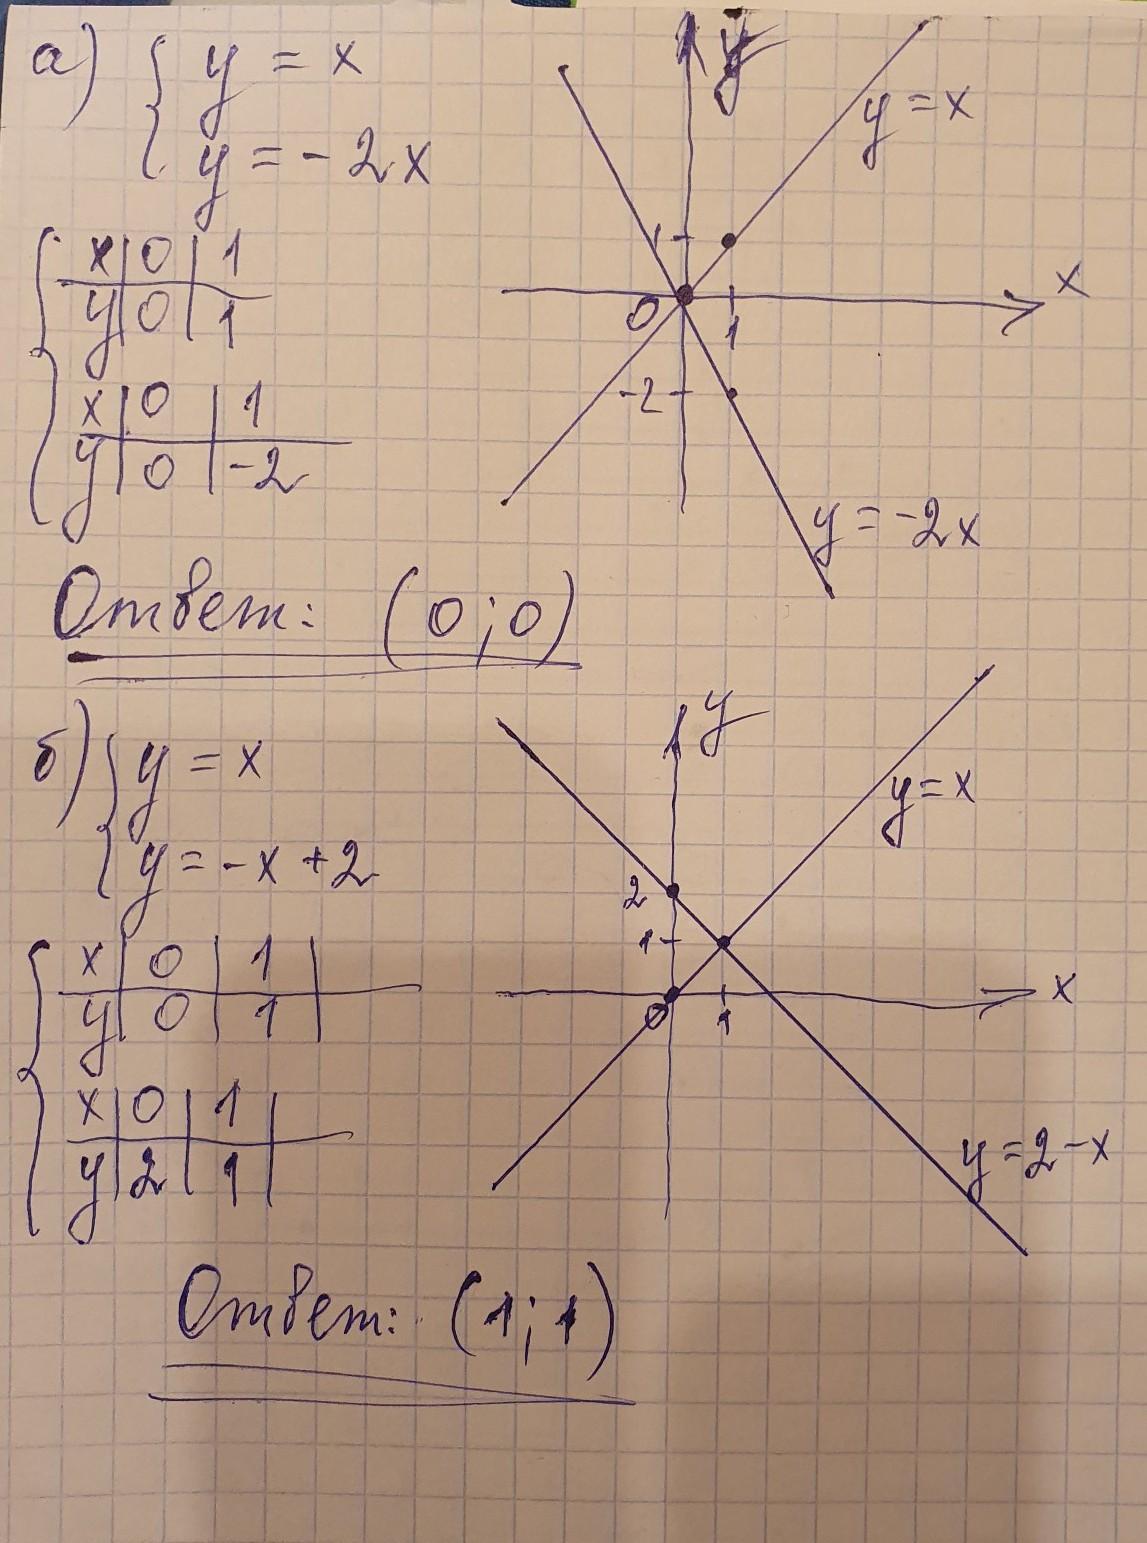 а) { y = x
y = -2x
x | 0 | 1
y | 0 | 1
x | 0 | 1
y | 0 | -2
y
y = x
1
x
0
1
-2
y = -2x
Ответ: (0;0)
б) { y = x
y = -x + 2
x | 0 | 1 |
y | 0 | 1 |
x | 0 | 1 |
y | 2 | 1 |
y
y = x
2
1
x
0
1
y = 2 - x
Ответ: (1;1)